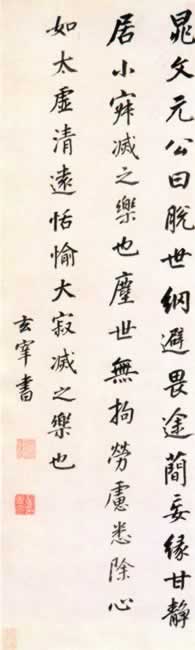 晁文元公曰脫世網避畏途蕳妄緣甘靜
居小寂滅之樂也塵世無拘勞慮悉除心
如太虛清遠恬愉大寂滅之樂也
玄宰書